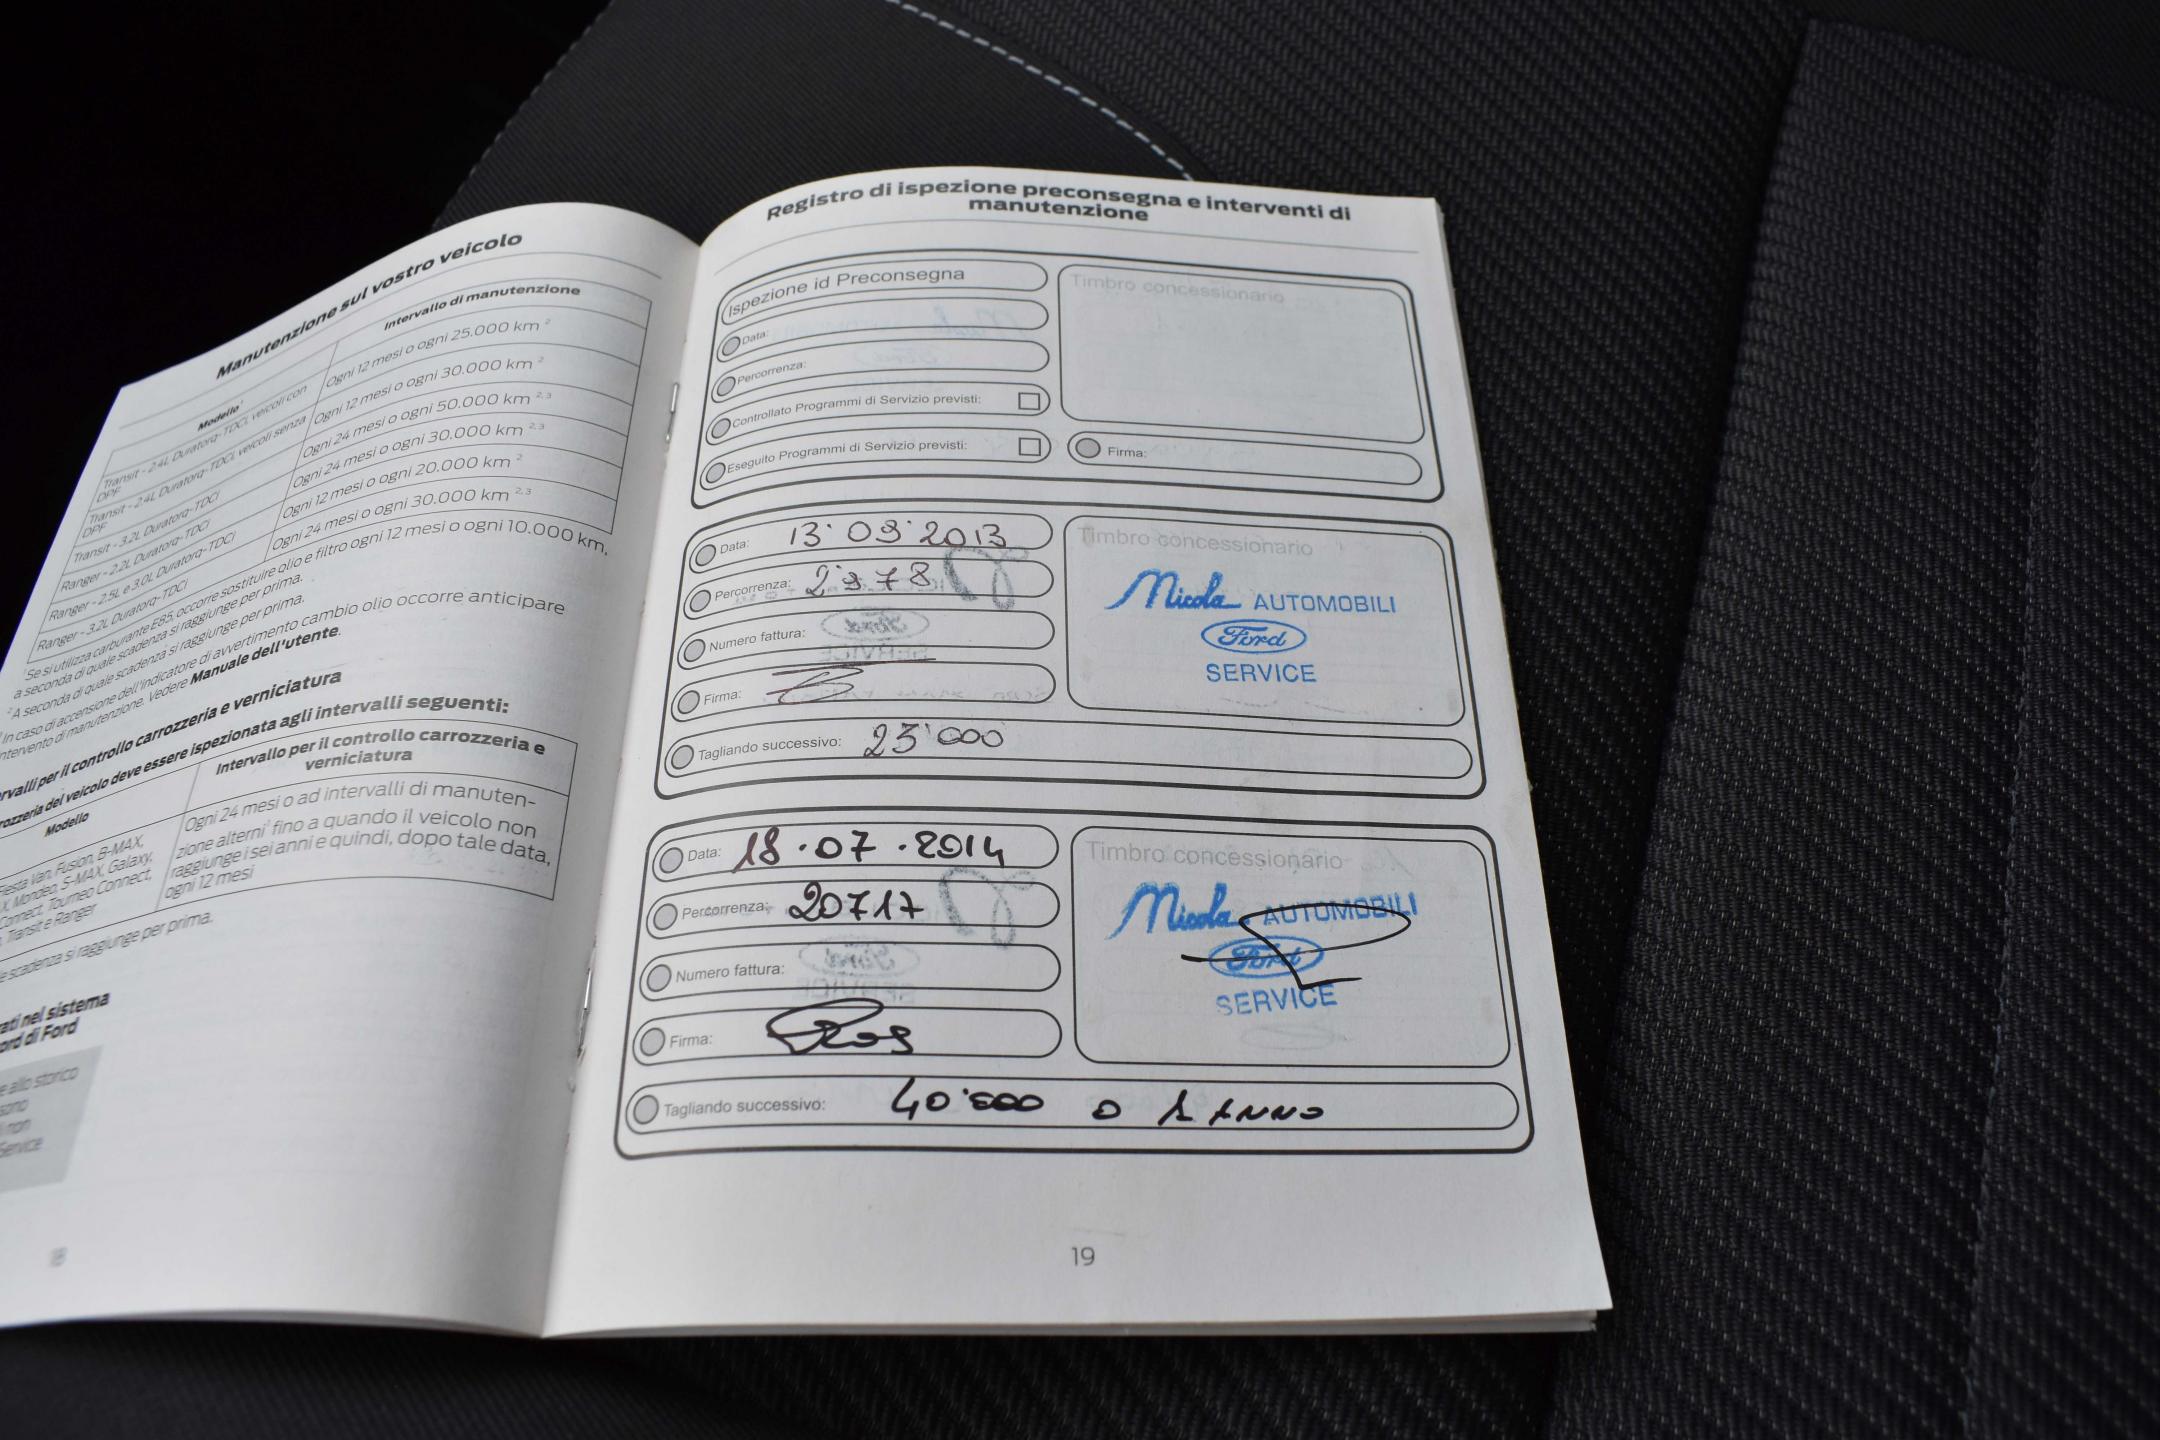 Manutenzione sul vostro veicolo
Modello¹ Intervallo di manutenzione
Transit - 2.4L Duratorq-TDCi, veicoli con DPF Ogni 12 mesi o ogni 25.000 km ²
Transit - 2.4L Duratorq-TDCi, veicoli senza DPF Ogni 12 mesi o ogni 30.000 km ²
Transit - 3.2L Duratorq-TDCi Ogni 24 mesi o ogni 50.000 km ²,³
Ranger - 2.2L Duratorq-TDCi Ogni 24 mesi o ogni 30.000 km ²,³
Ranger - 2.5L e 3.0L Duratorq-TDCi Ogni 12 mesi o ogni 20.000 km ²
Ranger - 3.2L Duratorq-TDCi Ogni 24 mesi o ogni 30.000 km ²,³
¹ Se si utilizza carburante E85, occorre sostituire olio e filtro ogni 12 mesi o ogni 10.000 km,
a seconda di quale scadenza si raggiunge per prima.
² A seconda di quale scadenza si raggiunge per prima.
In caso di accensione dell'indicatore di avvertimento cambio olio occorre anticipare
intervento di manutenzione. Vedere Manuale dell'utente.
per il controllo carrozzeria e verniciatura
del veicolo deve essere ispezionata agli intervalli seguenti:
Modello Intervallo per il controllo carrozzeria e
verniciatura
Fiesta Van, Fusion, B-MAX,
Mondeo, S-MAX, Galaxy,
Connect, Tourneo Connect,
Transit e Ranger
Ogni 24 mesi o ad intervalli di manuten-
zione alterni¹ fino a quando il veicolo non
raggiunge i sei anni e quindi, dopo tale data,
ogni 12 mesi
scadenza si raggiunge per prima.
nel sistema
di Ford
allo storico
sono
non
Service
18
Registro di ispezione preconsegna e interventi di
manutenzione
Ispezione id Preconsegna
Data:
Percorrenza:
Controllato Programmi di Servizio previsti:
Eseguito Programmi di Servizio previsti:
Timbro concessionario
Firma:
Data: 13·09·2013
Percorrenza: 2'978
Numero fattura:
Firma:
Tagliando successivo: 23'000
Timbro concessionario
Nicola AUTOMOBILI
Ford
SERVICE
Data: 18·07·2014
Percorrenza: 20717
Numero fattura:
Firma:
Tagliando successivo: 40'000 O 1 ANNO
Timbro concessionario
Nicola AUTOMOBILI
Ford
SERVICE
19